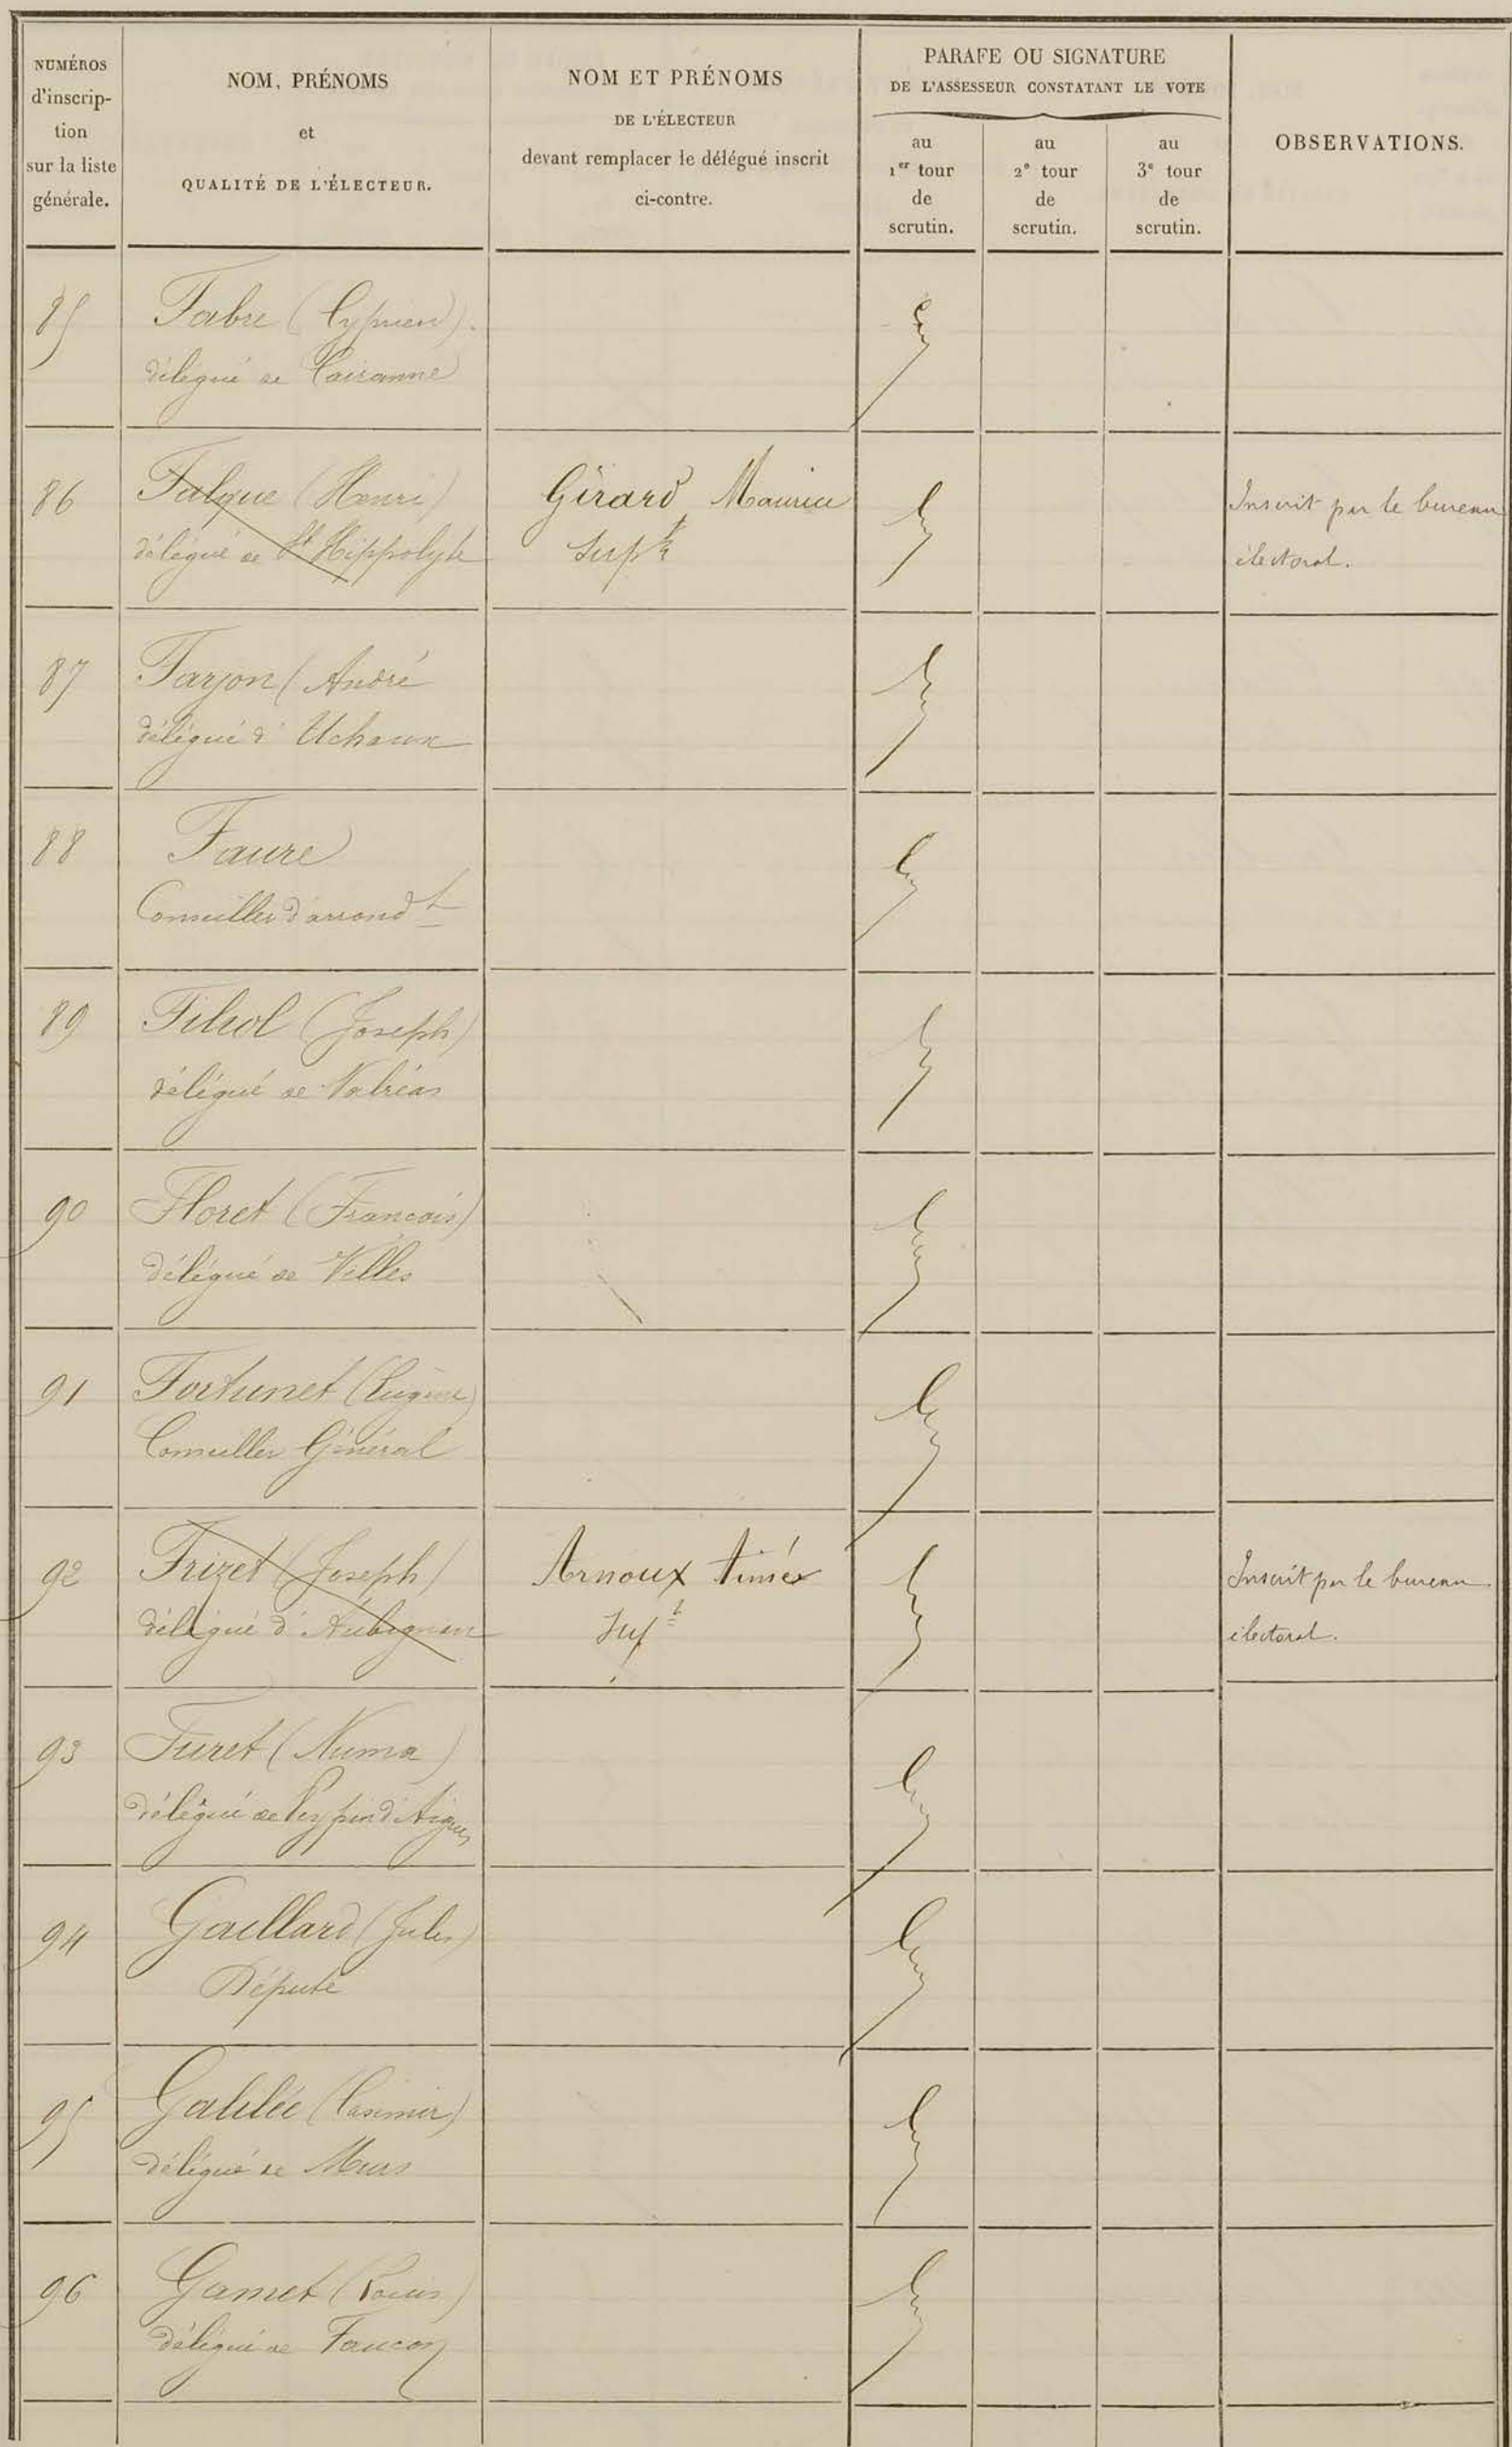 NUMÉROS
d'inscrip-
tion
sur la liste
générale.
NOM, PRÉNOMS
et
QUALITÉ DE L'ÉLECTEUR.
NOM ET PRÉNOMS
DE L'ÉLECTEUR
devant remplacer le délégué inscrit
ci-contre.
PARAFE OU SIGNATURE
DE L'ASSESSEUR CONSTATANT LE VOTE
au
1er tour
de
scrutin.
au
2e tour
de
scrutin.
au
3e tour
de
scrutin.
OBSERVATIONS.
85
Fabre (Cyprien).
délégué de Cairanne
86
Falque (Henri)
délégué de St Hippolyte
Girard Maurice
Supt
Inscrit par le bureau
électoral.
87
Farjon (André
délégué d'Uchaux
88
Faure
Conseiller d'arrondt
89
Filiol (Joseph)
délégué de Valréas
90
Floret (François)
délégué de Villes
91
Fortunet (Eugène)
Conseiller Général
92
Frizet (Joseph)
délégué d'Aubignan
Arnoux Aimée
Supt
Inscrit par le bureau
électoral.
93
Furet (Numa)
délégué de Peypin d'Aigues
94
Gaillard (Jules)
Député
95
Galilée (Casimir)
délégué de Murs
96
Gamet (Louis)
délégué de Faucon